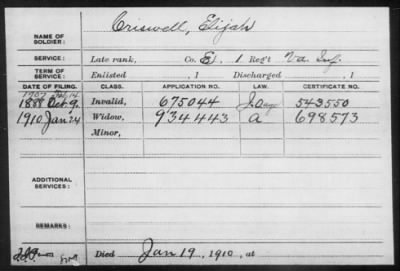 Criswell, Elijah
NAME OF SOLDIER:
SERVICE: Late rank, Co. E, 1 Reg't Va. Inf.
TERM OF SERVICE: Enlisted , 1 Discharged , 1
DATE OF FILING. CLASS. APPLICATION NO. LAW. CERTIFICATE NO.
1907
1888 Oct. 9. Invalid, 675044 543550
1910 Jan 24 Widow, 934443 a 698573
Minor,
ADDITIONAL SERVICES:
REMARKS:
Died Jan 19, 1910, at